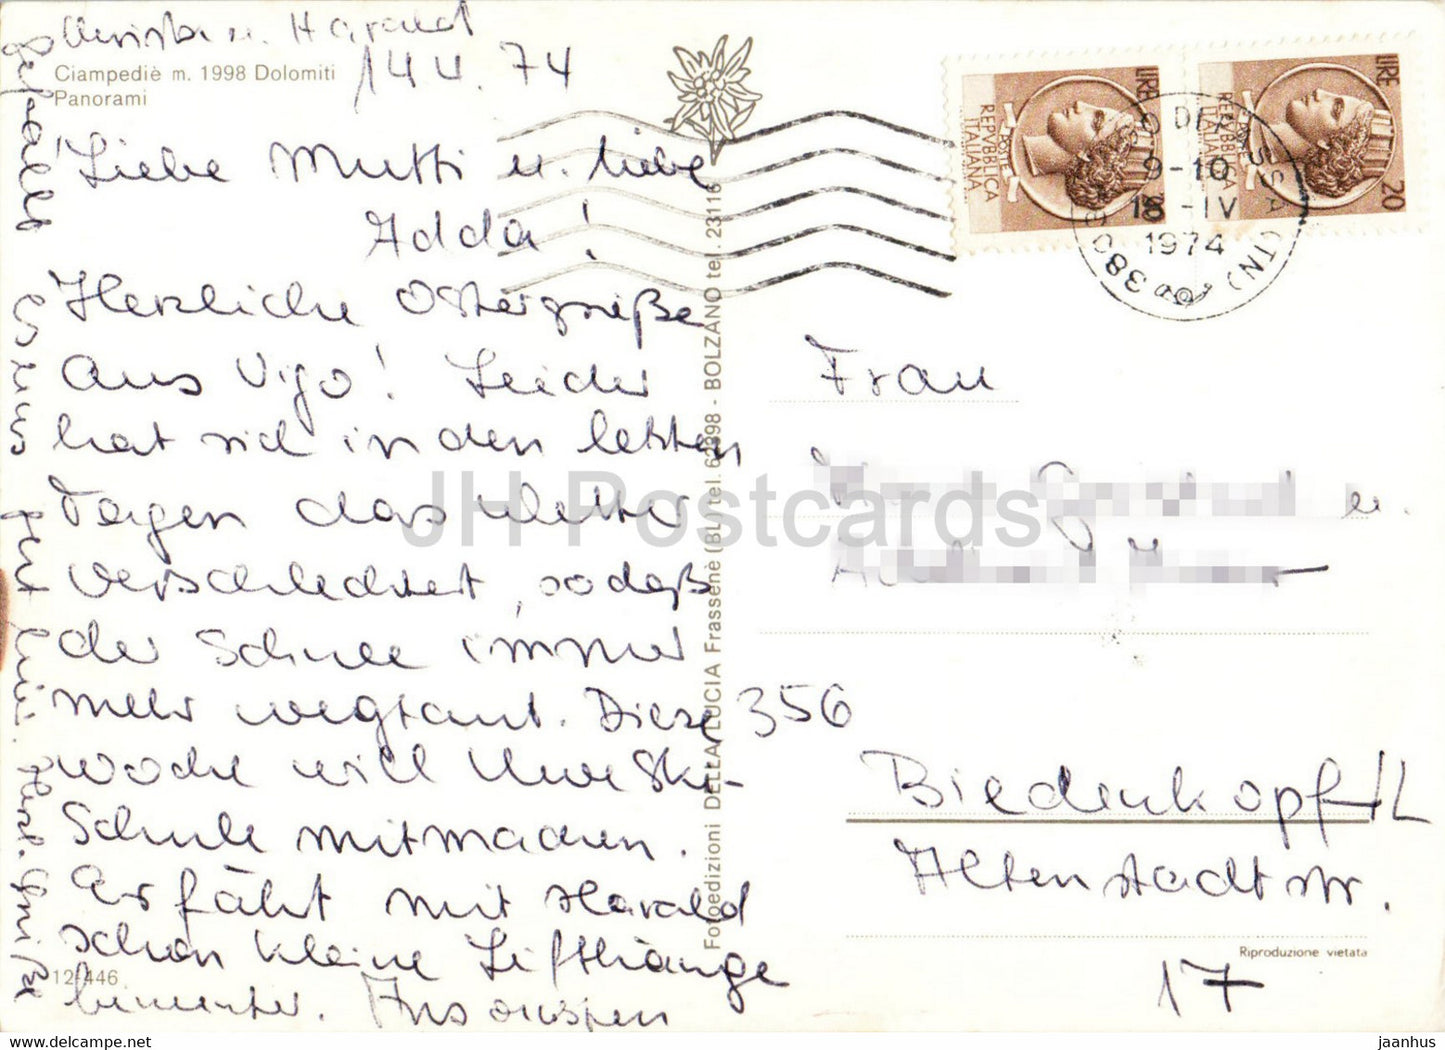 Ciampediè m. 1998 Dolomiti
Panorami
14.4.74
Liebe Mutti u. liebe
Adda!
Herzliche Ostergrüße
aus Vigo! Leider
hat sich in den letzten
Tagen das Wetter
verschlechtert, so daß
der Schnee immer
mehr wegtaut. Diese
Woche will Uwe Ski-
Schule mitmachen.
Er fährt mit Harald
schon kleine Lifthänge
herunter. Ansonsten
gefällt es uns gut hier. Herzl. Grüße
Christa u. Harald
12-446
Fotoedizioni DELLA LUCIA Frassenè (BL) tel. 62398 - BOLZANO tel. 23116
REPVBBLICA
ITALIANA
POSTE
LIRE
20
REPVBBLICA
ITALIANA
LIRE
20
9-10
18-IV
1974
380
(TN)
Frau
u.
356
Biedenkopf/L
Altenstadtstr.
17
Riproduzione vietata
JH Postcards
jaanhus